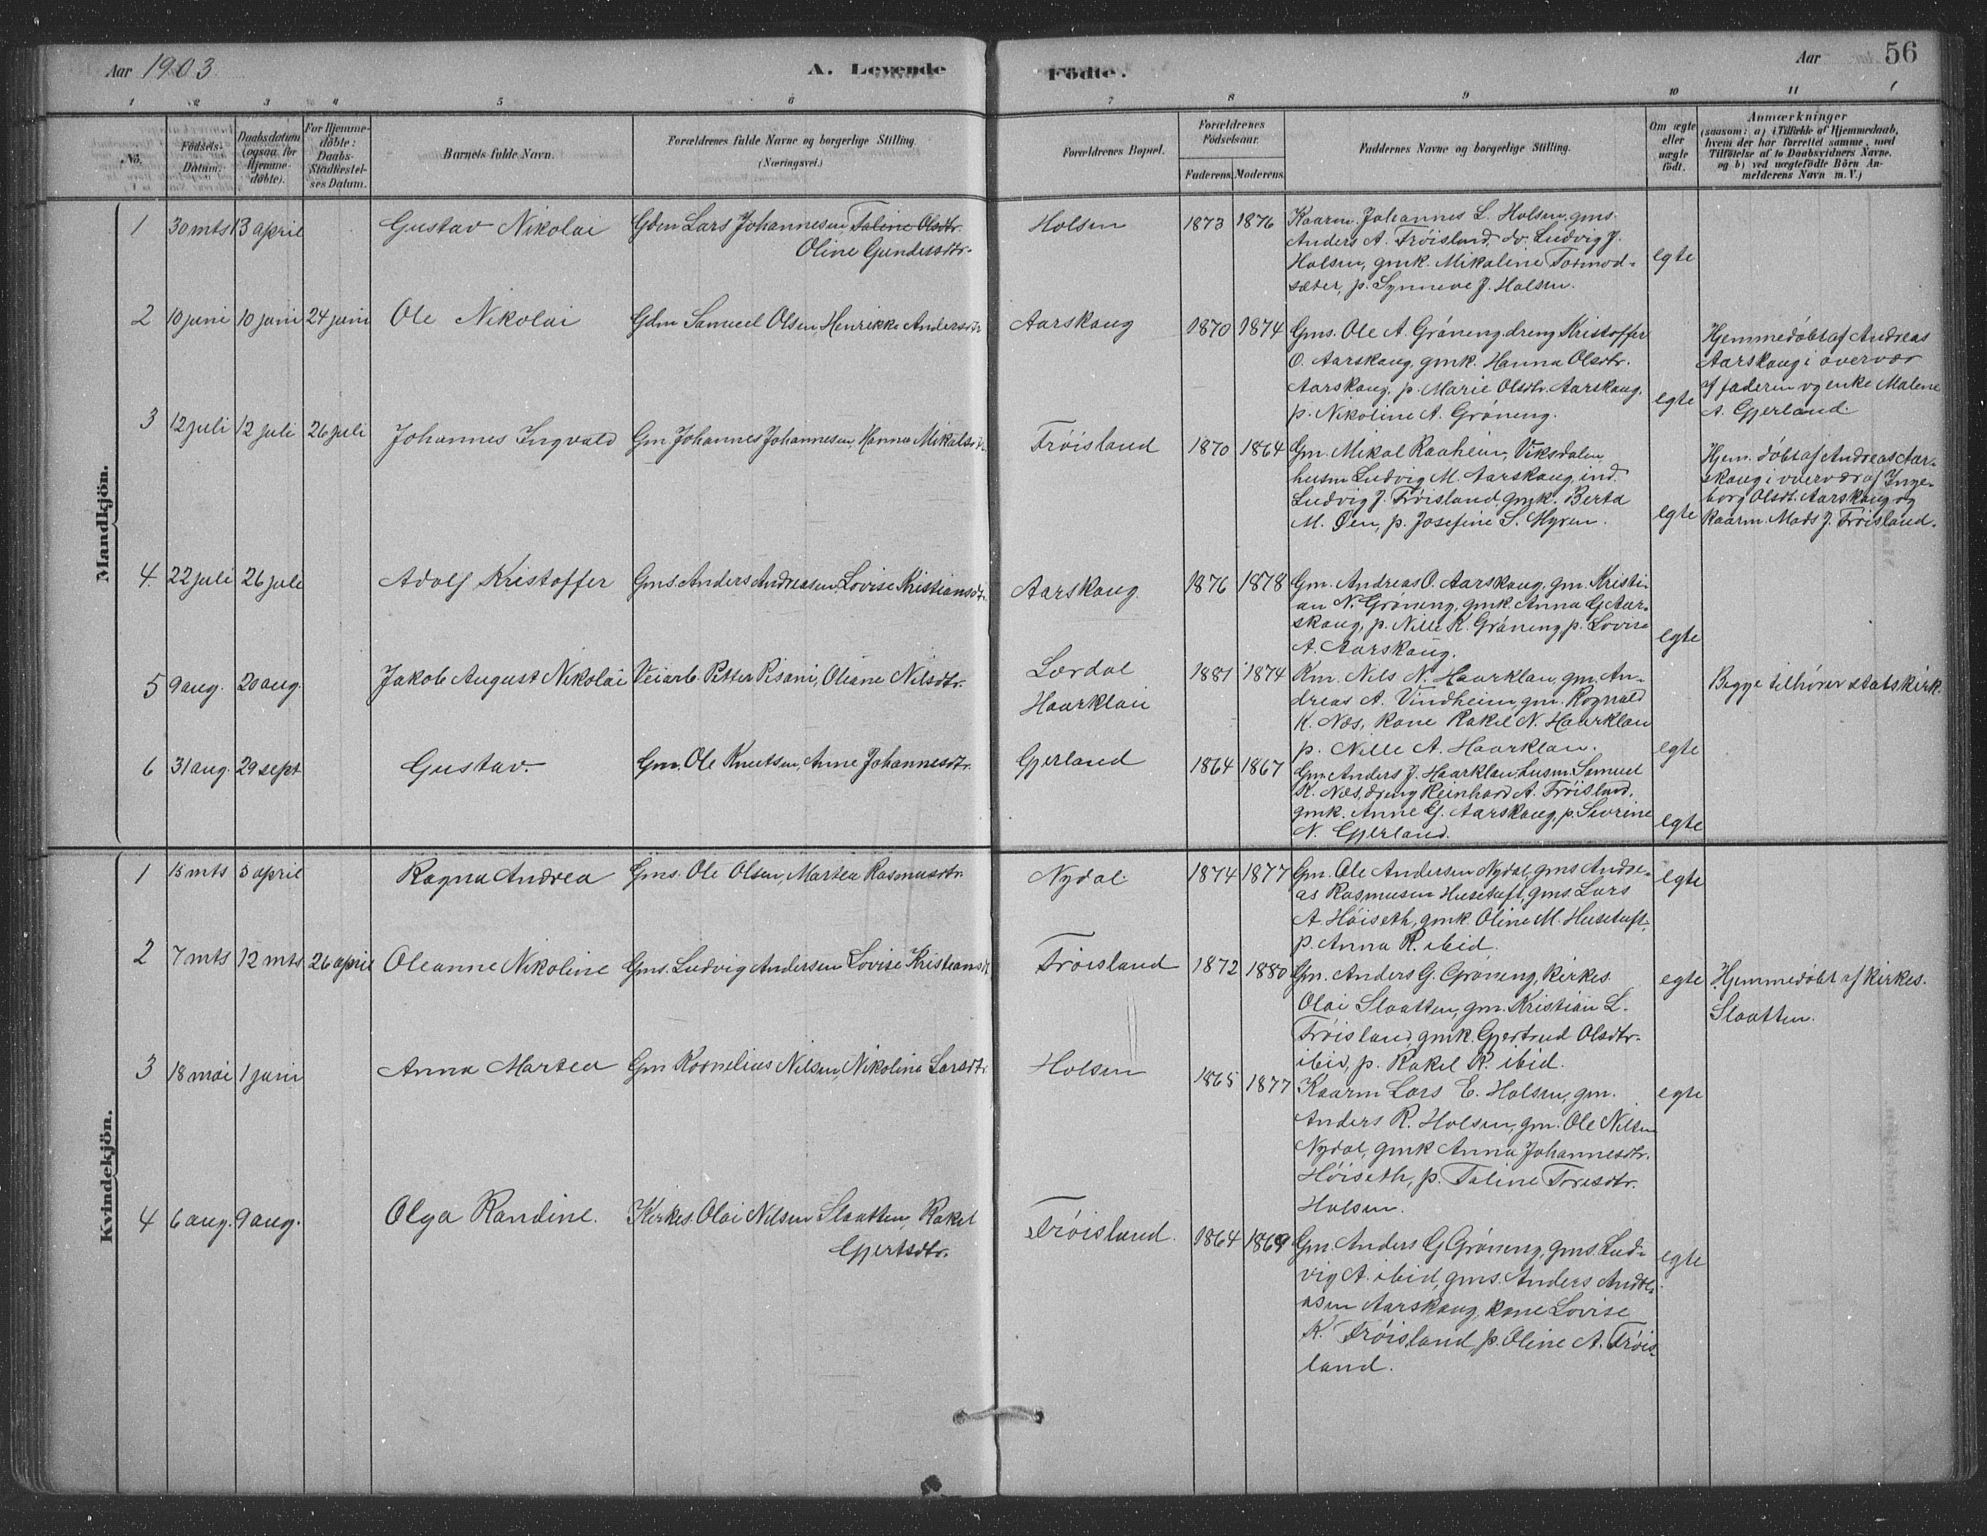 Aar 1903.
A. Levende Födte.
Aar
56
1 2 3 4 5 6 7 8 9 10 11
No.
Födsels-
Datum.
Daabsdatum
(ogsaa for
Hjemme-
döbte).
For Hjemme-
döbte:
Daabs-
Stadfæstel-
ses Datum.
Barnets fulde Navn.
Forældrenes fulde Navne og borgerlige Stilling.
(Næringsvei.)
Forældrenes Bopæl.
Forældrenes
Födselsaar.
Faderens. Moderens.
Faddernes Navne og borgerlige Stilling.
Om ægte
eller
uægte
födt.
Anmærkninger
(saasom: a) i Tilfælde af Hjemmedaab,
hvem der har forrettet samme, med
Tilföielse af to Daabsvidners Navne.
og b) ved uægtefödte Börn An-
melderens Navn m. V.)
Mandkjön.
1 30 mts 13 april Gustav Nikolai Gdm Lars Johannesen Taline Olsdtr.
Oline Gundersdtr.
Holsen 1873 1876
Kaarm. Johannes L. Holsen, gms.
Anders A. Trøisland, do. Ludvig J.
Holsen, gmk. Mikaline Tormod-
sæter, p. Synneve J. Holsen.
egte
2 10 juni 10 juni 24 juni Ole Nikolai Gdm Samuel Olsen, Henrikke Andersdtr
Aarskaug 1870 1874
Gms. Ole A. Grøneng, dreng Kristoffer
O. Aarskaug, gmk. Hanna Olsdtr.
Aarskaug, p. Marie Olsdtr. Aarskaug,
p. Nikoline A. Grøneng.
egte
Hjemmedøbt af Andreas
Aarskaug i overvær
af faderen og enke Malene
A. Gjerland.
3 12 juli 12 juli 26 juli Johannes Ingvald Gm Johannes Johannesen, Hanna Mikalsdtr.
Trøisland 1870 1864
Gm. Mikal Raaheim, Viksdalen,
husm Ludvig M. Aarskaug, ind.
Ludvig J. Trøisland, gmk. Berta
M. Øen, p. Josefine S. Hyren.
egte
Hjem. døbt af Andreas Aar-
skaug i overvær af Inge-
borg Olsdt. Aarskaug og
Kaarm. Mads J. Trøisland.
4. 22 juli 26 juli Adolf Kristoffer Gms. Anders Andreasen, Lovise Kristiansdtr.
Aarskaug 1876 1878
Gm. Andreas O. Aarskaug, gm. Kristi-
an N. Grøneng, gmk. Anna G Aar-
skaug, p. Nille R. Grøneng p. Lovise
A. Aarskaug.
egte
5 9 aug. 20 aug. Jakob August Nikolai Veiarb. Petter Pisani, Oliane Nilsdtr.
Lærdal
Haarklau
1881 1874
Km. Nils N. Haarklau, gm. An-
dreas A. Vindheim, gm. Rognald
K. Næs, kone Rakel N. Haarklau
p. Nille A. Haarklau.
egte
Begge tilhører statskirk.
6 31 aug. 29 sept Gustav. Gm. Ole Knutsen, Anne Johannesdtr.
Gjerland 1864 1867
Gm. Anders J. Haarklau, husm. Samuel
K. Næs, dreng Reinhard A. Trøisland.
gmk. Anne G. Aarskaug, p. Sevrine
N. Gjerland.
egte
Kvindekjön.
1 15 mts 5 april Ragna Andrea Gms. Ole Olsen, Martea Rasmusdtr.
Nydal. 1874 1877
Gm. Ole Andersen Nydal, gms Andre-
as Rasmusen Husetuft, gms. Lars
A. Høiseth, gmk Oline M. Husetuft,
p. Anna R. ibid.
egte
2 7 mts 12 mts 26 april Oleanne Nikoline Gms. Ludvig Andersen Lovise Kristiansdt.
Trøisland 1872 1880
Gm. Anders G. Grøneng, Kirkes.
Olai Slaatten, gm. Kristian L.
Trøisland, gmk. Gjertrud Olsdtr.
ibid, p. Rakel R. ibid.
egte
Hjemmedøbt af kirkes.
Slaatten.
3 18 mai 1 juni Anna Martea Gm Kornelius Nilsen, Nikoline Larsdtr.
Holsen 1865 1877
Kaarm Lars E. Holsen, gm.
Anders R. Holsen, gm. Ole Nilsen
Nydal, gmk Anna Johannesdtr.
Høiseth, p. Taline Toresdtr.
Holsen.
egte
4 6 aug. 9 aug. Olga Randine. Kirkes. Olai Nilsen Slaatten, Rakel
Gjertsdtr.
Trøisland. 1864 1869
Gm. Anders G Grøneng, gms. Lud-
vig A. ibid, gms. Anders Andre-
asen Aarskaug, kone Lovise
K. Trøisland, p. Oline A. Trøis-
land.
egte